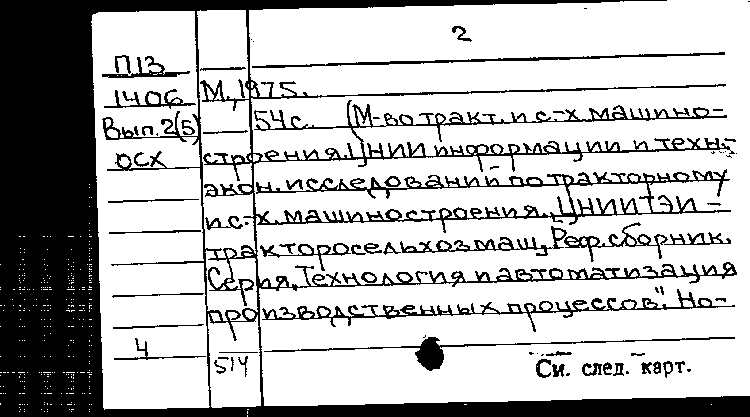 2
П13
1406
Вып.2(5)
ОСХ
М., 1975.
54с. (М-во тракт. и с.-х. машино-
строения. ЦНИИ информации и техн.-
экон. исследований по тракторному
и с.-х. машиностроения. „ЦНИИТЭИ-
трактороcельхозмаш„ Реф. сборник.
Серия „Технология и автоматизация
производственных процессов". Но-
4
514
См. след. карт.